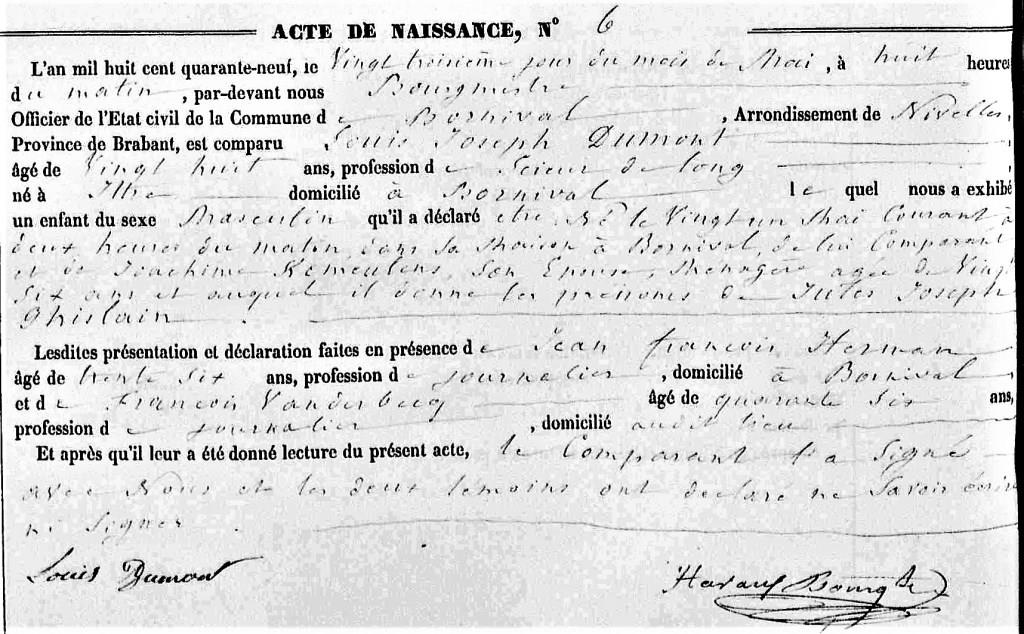 ACTE DE NAISSANCE, N° 6
L'an mil huit cent quarante-neuf, le Vingt troisième jour du mois de Mai, à huit heures
du matin, par-devant nous Bourgmestre
Officier de l'Etat civil de la Commune de Bornival, Arrondissement de Nivelles,
Province de Brabant, est comparu Louis Joseph Dumont
âgé de Vingt huit ans, profession de Scieur de long
né à Ittre domicilié à Bornival lequel nous a exhibé
un enfant du sexe Masculin qu'il a déclaré etre Né le Vingt un Mai Courant à
deux heures du matin, dans sa Maison à Bornival, de lui Comparant
et de Joachime Kemeulens, Son Epouse, Ménagère agée de Vingt
Six ans et auquel il donne les prénoms de Jules Joseph
Ghislain.
Lesdites présentation et déclaration faites en présence de Jean françois Herman
âgé de trente Six ans, profession de journalier, domicilié à Bornival
et de François Vanderbecq âgé de quarante Six ans,
profession de journalier, domicilié audit lieu
Et après qu'il leur a été donné lecture du présent acte, le Comparant l'a Signé
avec Nous et les deux temoins ont declaré ne Savoir écrire
ni Signer.
Louis Dumont
Bourgtre